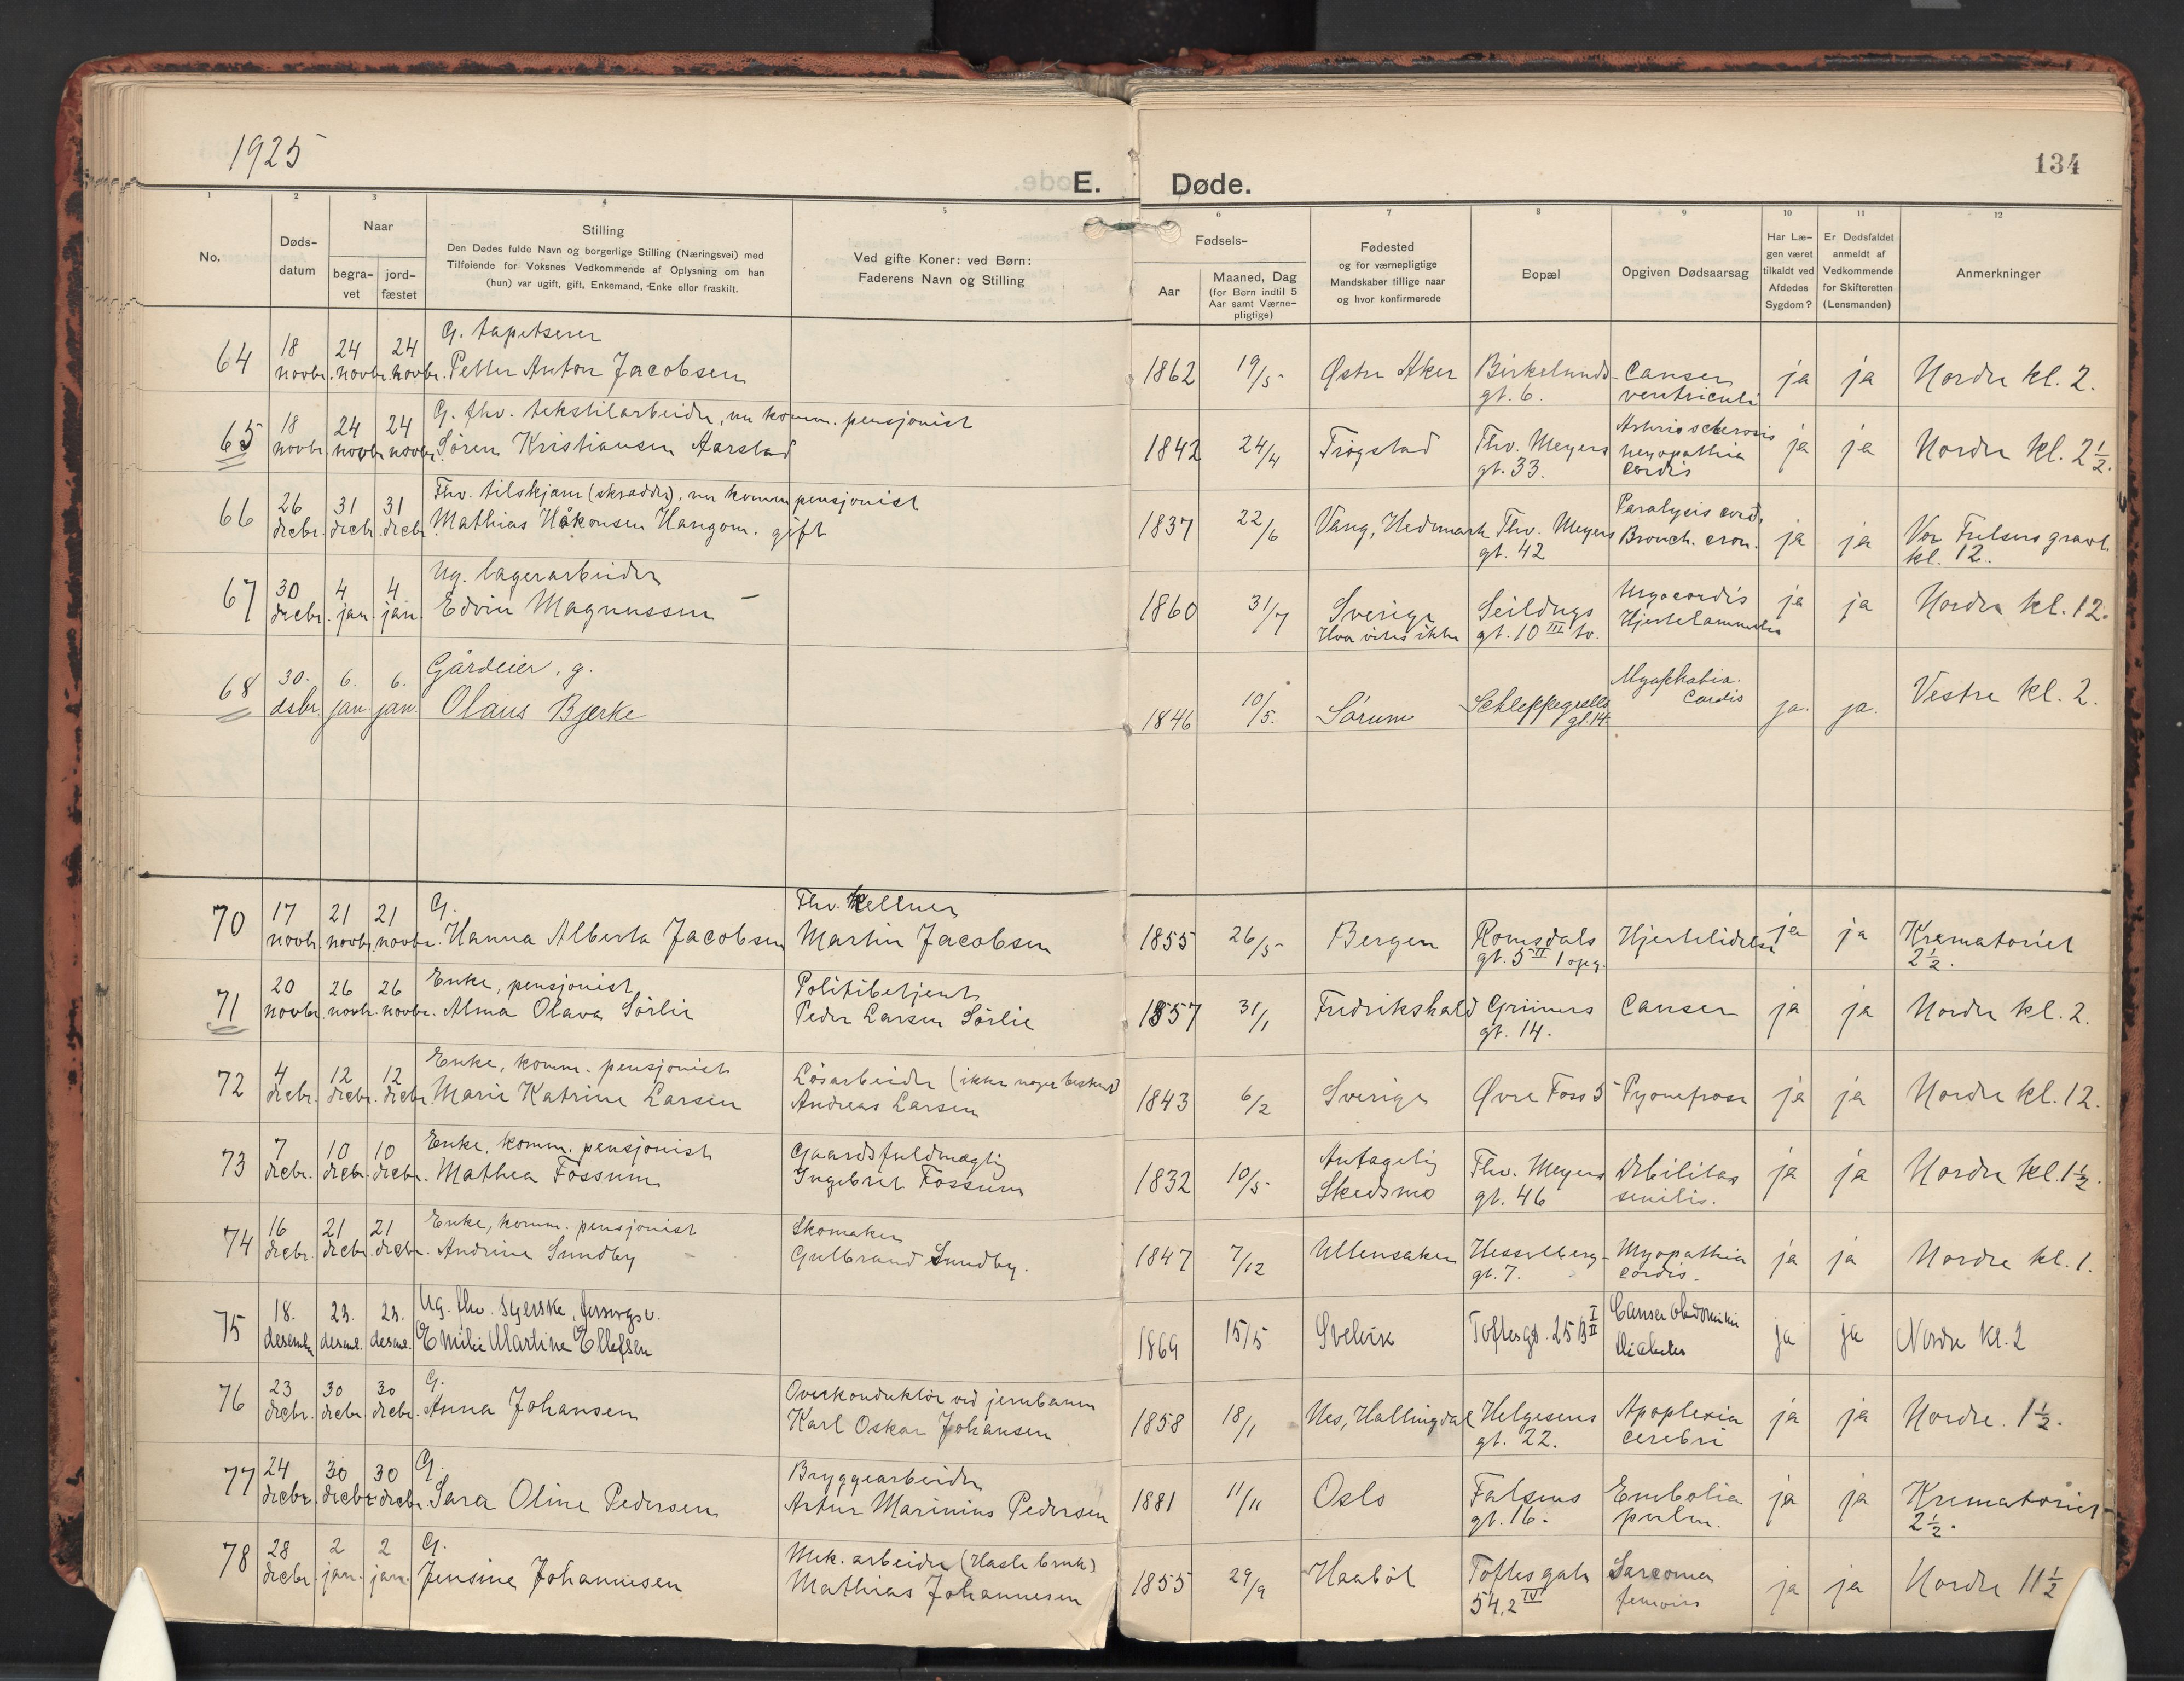 1925
134
E. Døde.
1 2 3 4 5 6 7 8 9 10 11 12
No.
Døds-
datum
Naar
begra-
vet
jord-
fæstet
Stilling
Den Dødes fulde Navn og borgerlige Stilling (Næringsvei) med
Tilføiende for Voksnes Vedkommende af Oplysning om han
(hun) var ugift, gift, Enkemand, Enke eller fraskilt.
Ved gifte Koner: ved Børn:
Faderens Navn og Stilling
Fødsels-
Aar
Maaned, Dag
(for Børn indtil 5
Aar samt Værne-
pligtige)
Fødested
og for værnepligtige
Mandskaber tillige naar
og hvor konfirmerede
Bopæl
Opgiven Dødsaarsag
Har Læ-
gen været
tilkaldt ved
Afdødes
Sygdom?
Er Dødsfaldet
anmeldt af
Vedkommende
for Skifteretten
(Lensmanden)
Anmerkninger
64 18 novbr. 24 novbr. 24 novbr.
G. tapetserer
Petter Anton Jacobsen
1862 19/5 Østre Aker Birkelunds- gt. 6. Canser ventriculi ja ja Nordre kl. 2.
65 18 novbr. 24 novbr. 24 novbr.
G. fhv. tekstilarbeider, nu komm. pensjonist
Søren Kristiansen Aarstad
1842 24/4 Trøgstad Thv. Meyers gt. 33. cordis ja ja Nordre kl. 2 1/2.
66 26 decbr. 31 decbr. 31 decbr.
Fhv. tilskjærer (skrædder), nu komm pensjonist
Mathias Håkonsen Hangom. gift
1837 22/6 Vang, Hedmark Thv. Meyers gt. 42 Paralysis cord. Bronch. cron. ja ja Vor Frelsers gravl. kl. 12.
67 30 decbr. 4 jan. 4 jan.
Ug. lagerarbeider
Edvin Magnussen
1860 31/7 Sverige Hvor vites ikke Seildugs gt. 10 III tv. Myocordis Hjertelammelse ja ja Nordre kl. 12.
68 30. dsbr. 6. jan. 6. jan.
Gårdeier, g.
Olaus Bjerke
1846 10/5. Sørum Schleppegrells gt. 14 Cordis ja. ja. Vestre kl. 2.
70 17 novbr. 21 novbr. 21 novbr.
G.
Hanna Alberta Jacobsen
Fhv. Kellner
Martin Jacobsen
1855 26/5 Bergen Romsdals gt. 5 II 1 opg. Hjertelidelse ja ja Krematoriet 2 1/2.
71 20 novbr. 26 novbr. 26 novbr.
Enke, pensjonist
Alma Olava Sørlie
Politibetjent
Peder Larsen Sørlie
1857 31/1 Fredrikshald Grüners gt. 14. Canser ja ja Nordre kl. 2.
72 4 decbr. 12 decbr. 12 decbr.
Enke, komm. pensjonist
Marie Katrine Larsen
Løsarbeider (ikke noget bestemt)
Andreas Larsen
1843 6/2 Sverige Øvre Foss 5 Pyonefrose ja ja Nordre kl. 12.
73 7 decbr. 10 decbr. 10 decbr.
Enke, komm. pensjonist
Mathea Fossum
Gaardsfuldmægtig
Ingebret Fossum
1832 10/5 Antagelig Skedsmo Thv. Meyers gt. 46 Debilitas senilis. ja ja Nordre kl. 1 1/2.
74 16 decbr. 21 decbr. 21 decbr.
Enke, komm. pensjonist
Andrine Sundby
Skomaker
Gulbrand Sundby.
1847 7/12 Ullensaker Hesselberg- gt. 7. Myopathia cordis. ja ja Nordre kl. 1.
75 18. desemb. 23. desemb. 23. desemb.
Ug. fhv. syerske, forsorgsv.
Emilie Martine Ellefsen
1869 15/5 Svelvik Toftesgt. 25 B I II Canser abdomini Diabetes ja ja Nordre kl. 2
76 23 decbr. 30 decbr. 30 decbr.
G.
Anna Johansen
Overkonduktør ved jernbanen
Karl Oskar Johansen
1858 18/1 Nes, Hallingdal Helgesens gt. 22. Apoplexia cerebri ja ja Nordre. 1 1/2.
77 24 decbr. 30 decbr. 30 decbr.
G.
Sara Oline Pedersen
Bryggearbeider
Artur Marinius Pedersen
1881 11/11 Oslo Falsens gt. 16. Embolia pulm. ja ja Krematoriet 2 1/2.
78 28 decbr. 2 jan. 2 jan.
G.
Jensine Johannesen
Mek. arbeider (Hasle bruk)
Mathias Johannesen
1855 29/9 Haabøl Toftesgate 54,2 IV Sarcoma femoris ja ja Nordre 11 1/2